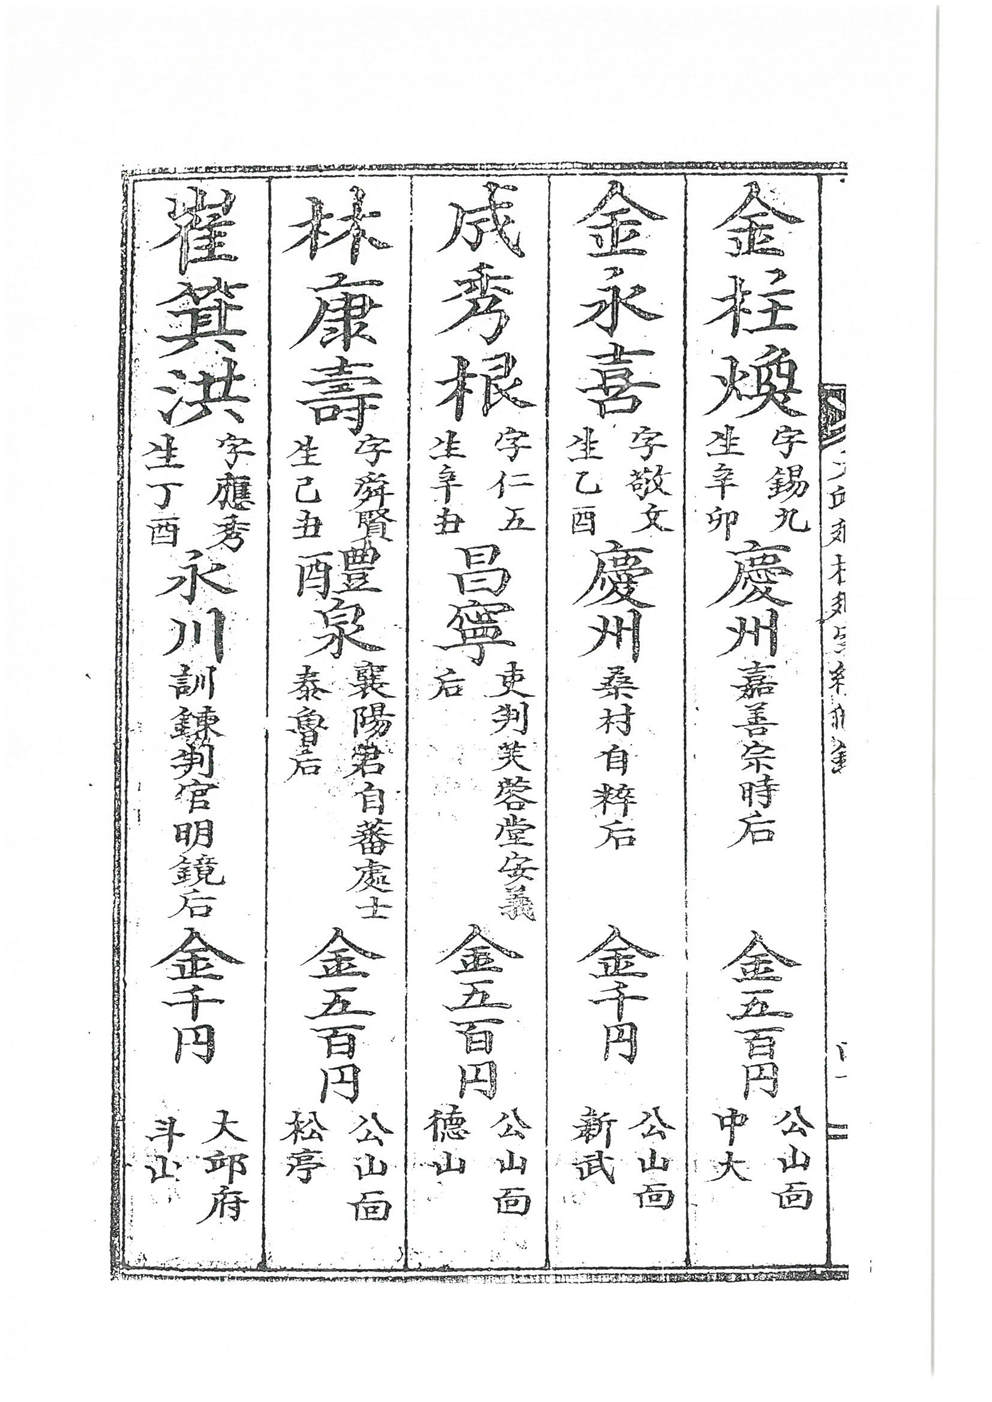 金柱煥 字錫九 生辛卯 慶州 嘉善宗時后 金五百円 公山面 中大
金永喜 字敬文 生乙酉 慶州 桑村自粹后 金千円 公山面 新武
成秀根 字仁五 生辛丑 昌寧 吏判芙蓉堂安義 后 金五百円 公山面 德山
林康壽 字舜賢 生己丑 醴泉 襄陽君自蕃處士 泰魯后 金五百円 公山面 松亭
崔箕洪 字應秀 生丁酉 永川 訓鍊判官明鏡后 金千円 大邱府 斗山